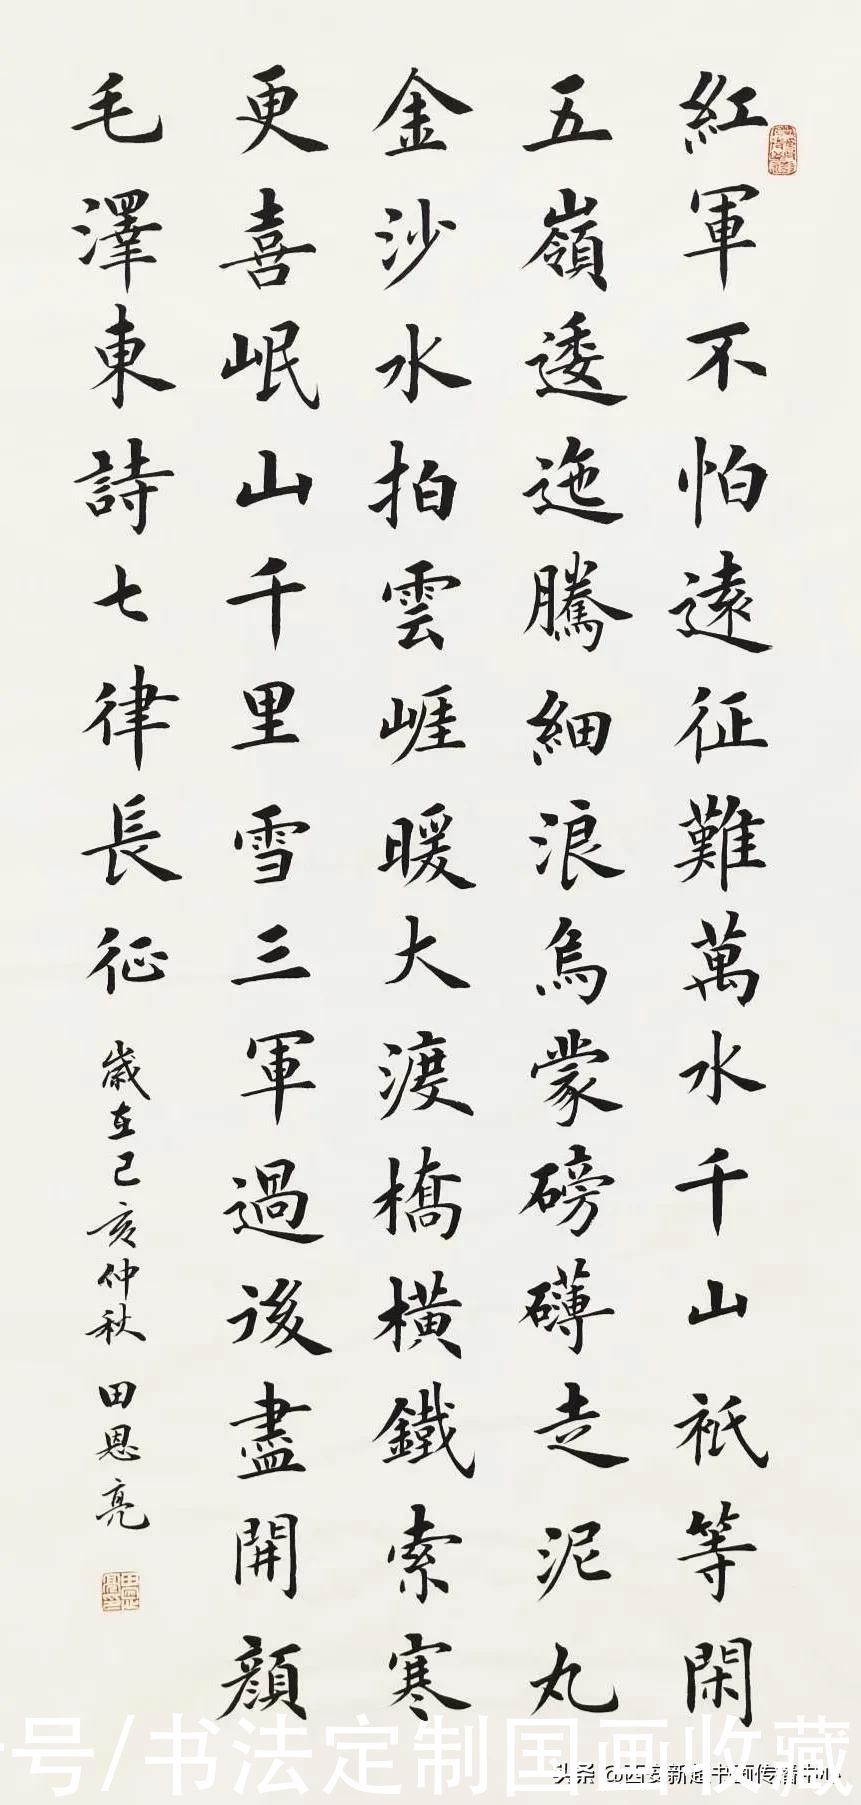 紅軍不怕遠征難萬水千山祇等閑
五嶺逶迤騰細浪烏蒙磅礴走泥丸
金沙水拍雲崕暖大渡橋橫鐵索寒
更喜岷山千里雪三軍過後盡開顏
毛澤東詩七律長征
歲在己亥仲秋 田恩亮
号/书法定制国画收藏
头条